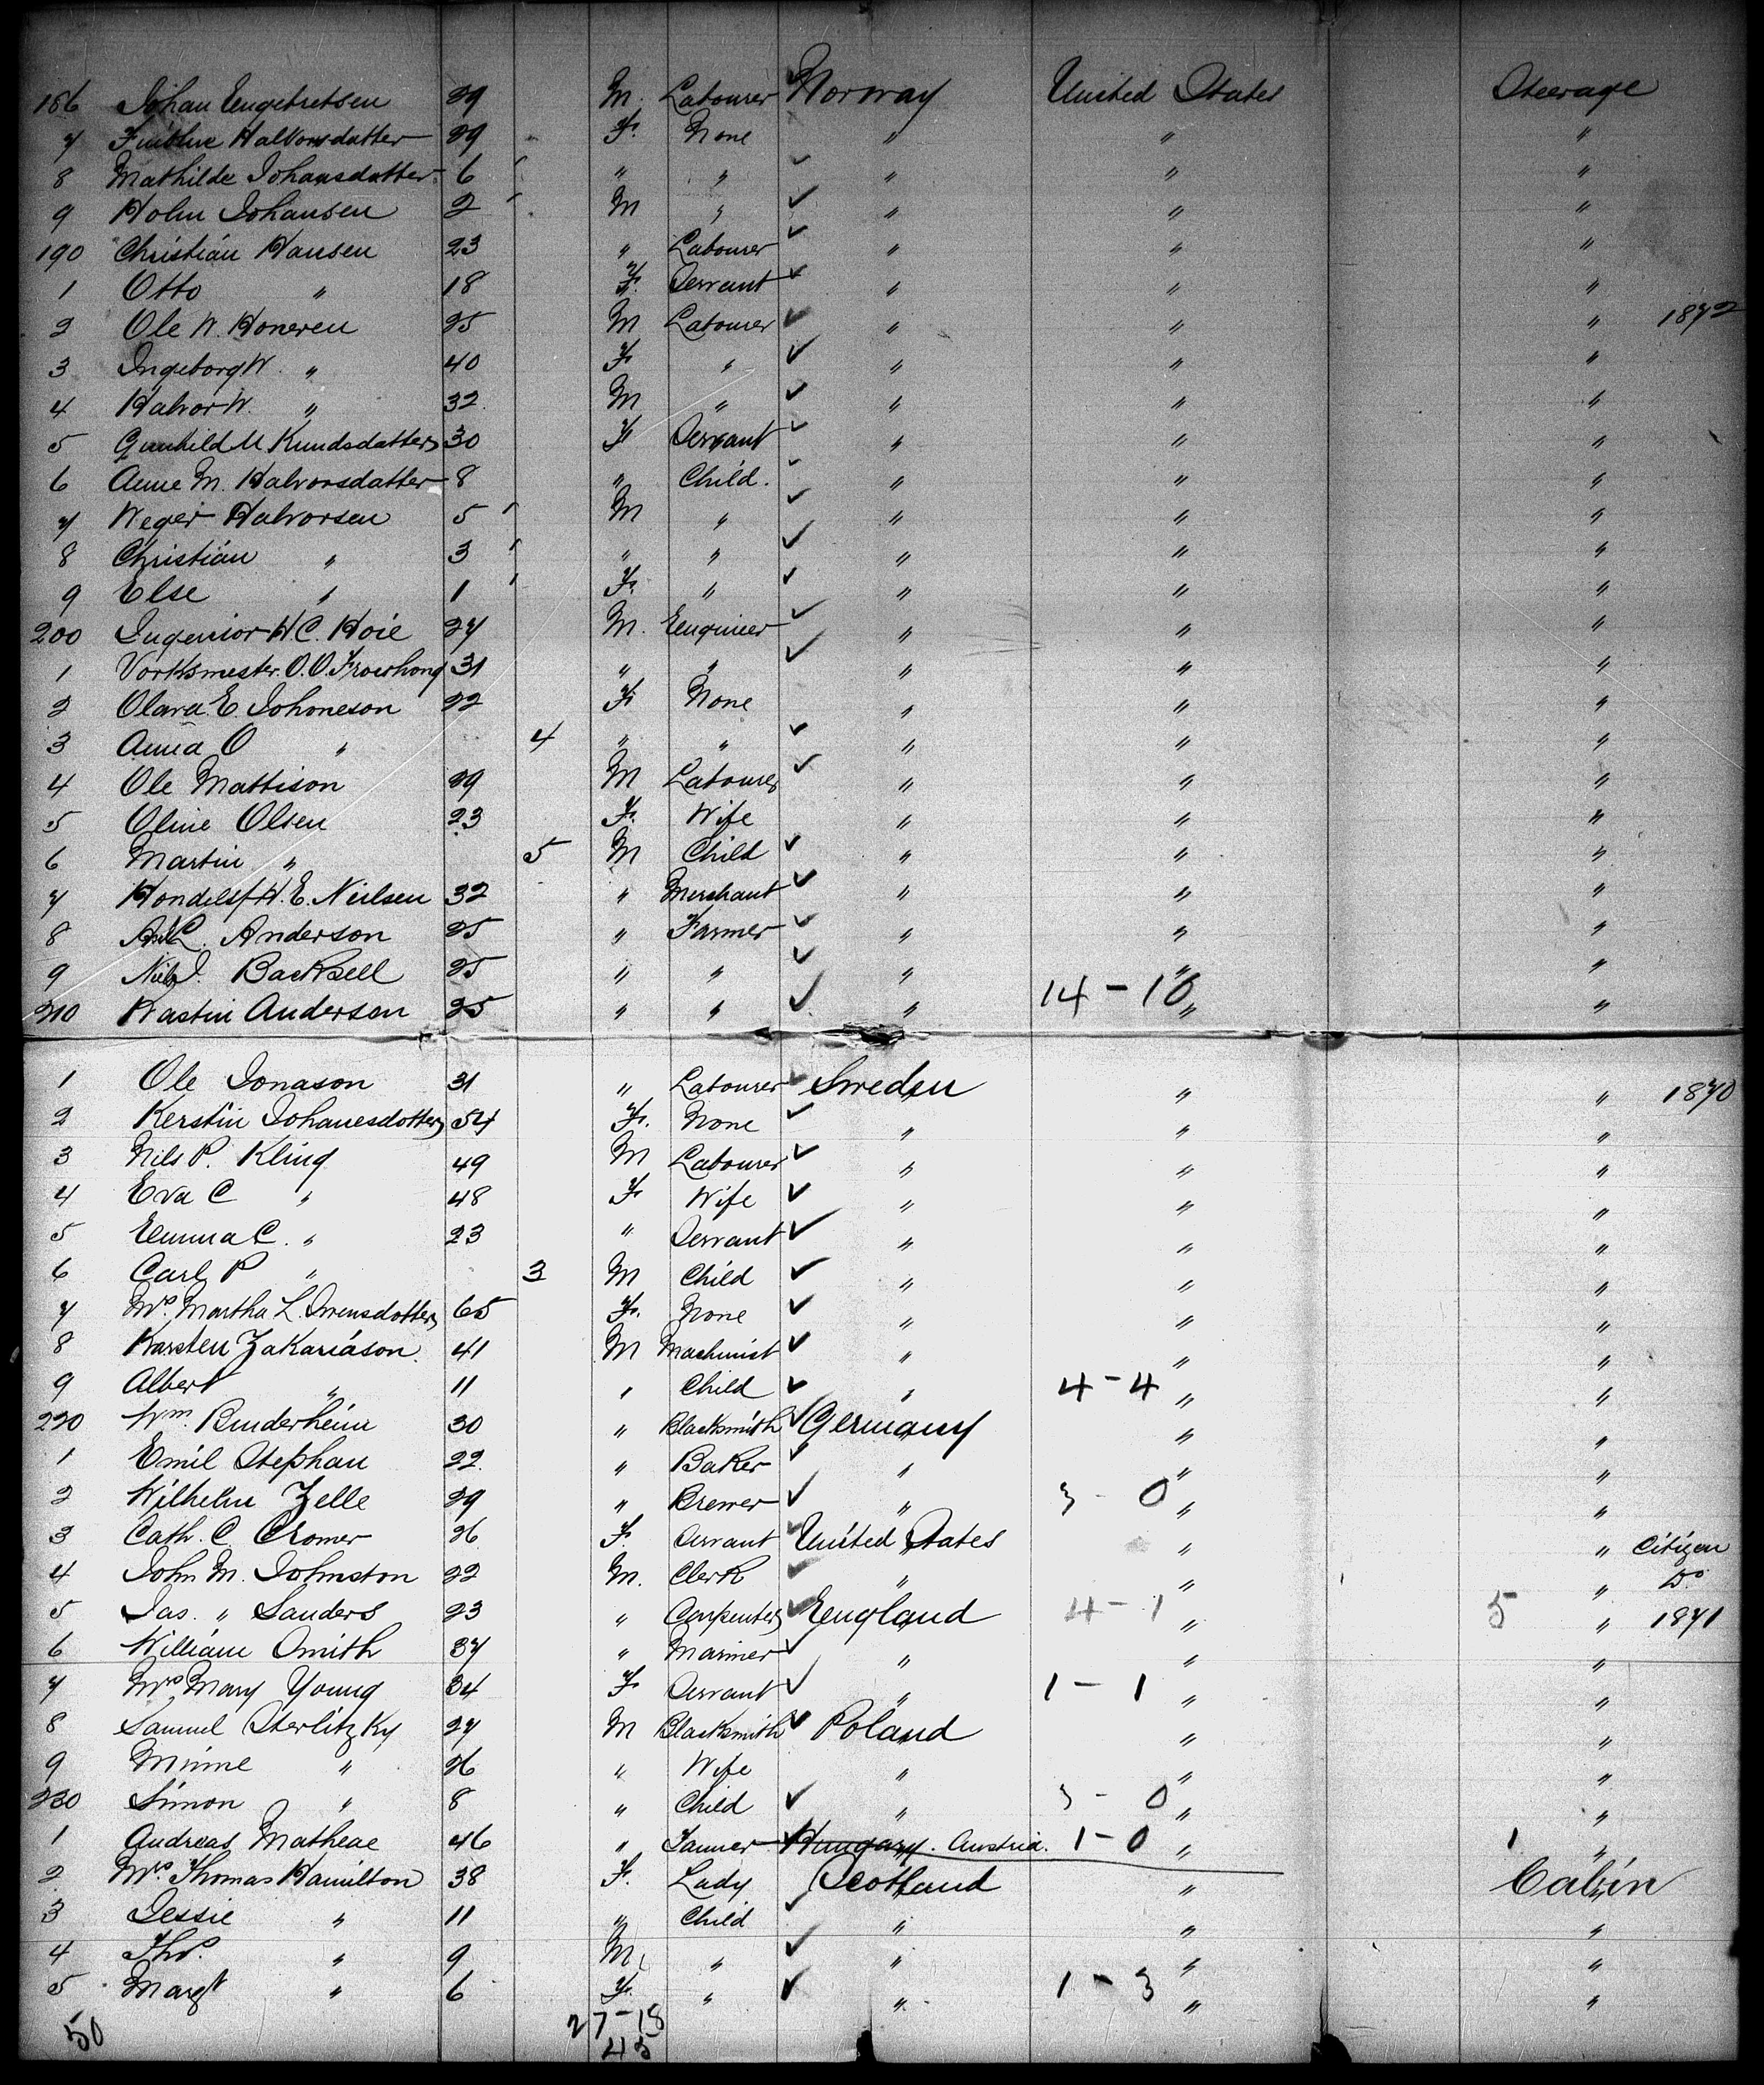 186 Johan Engebretsen 29 M. Labourer Norway United States Steerage
7 Halvorsdatter 29 F. None " " "
8 Mathilde Johansdatter 6 " " " " "
9 Holm Johansen 2 M " " " "
190 Christian Hansen 23 " Labourer " " "
1 Otto " 18 F. Servant " " "
2 Ole W. Honeren 25 M Labourer " " " 1872
3 Ingeborg W. " 40 F " " " "
4 Halvor W. " 32 M " " " "
5 Gunhild M Knudsdatter 30 F Servant " " "
6 Anne M. Halvorsdatter 8 " Child. " " "
7 Weger Halvorsen 5 M " " " "
8 Christian " 3 " " " " "
9 Else " 1 F. " " " "
200 Ingenior H C. Hoie 27 M. Engineer " " "
1 O.O. 31 " " " " "
2 Olava E. Johoneson 22 F None " " "
3 Anna O " 4 " " " " "
4 Ole Mattison 29 M Labourer " " "
5 Oline Olsen 23 F. Wife " " "
6 Martin " 5 M Child " " "
7 H. E. Neilsen 32 " Merchant " " "
8 Anderson 25 " Farmer " " "
9 Backsell 25 " " " " "
210 Kastin Andersen 25 " " " 14 - 10 " "
1 Ole Jonason 31 " Labourer Sweden " " 1870
2 Kerstin Johanesdotter 54 F. None " " "
3 Nils P. Kling 49 M Labourer " " "
4 Eva C " 48 F Wife " " "
5 Emma C. " 23 " Servant " " "
6 Carl P " 3 M Child " " "
7 Mrs. Martha L. Svensdotter 65 F. None " " "
8 Karsten Zakariason 41 M Machinist " " "
9 Albert " 11 " Child " 4 - 4 " "
220 Wm. Binderheim 30 " Blacksmith Germany " "
1 Emil Stephan 22 " Baker " " "
2 Wilhelm Zelle 29 " Brewer " 3 - 0 " "
3 Cath. C. Cromer 26 F. Servant United States " " Citizen
4 John M. Johnston 22 M. Clerk " " " Do
5 Jas. " Sanders 23 " Carpenter England 4 - 1 " 5 " 1871
6 William Smith 37 " Mariner " " "
7 Mrs. Mary Young 34 F Servant " 1 - 1 " "
8 Samuel Sterlitzky 27 M Blacksmith Poland " "
9 Minne " 26 " Wife " " "
230 Simon " 8 " Child " 3 - 0 " "
1 Andreas Matheae 46 " Tanner Hungary. Austria. 1 - 0 " 1 "
2 Mrs. Thomas Hamilton 38 F. Lady Scotland " Cabin
3 Jessie " 11 " Child " " "
4 Thos. " 9 M " " " "
5 Margt " 6 F. " " 1 - 3 " "
50 27 - 18
45